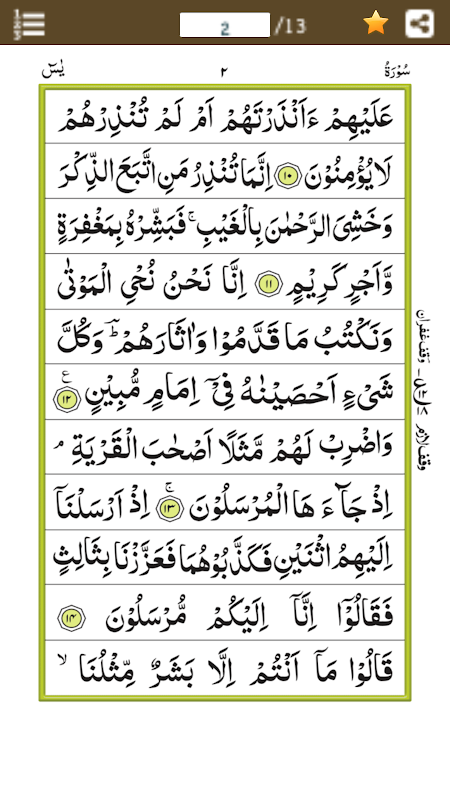 2 /13
سُوْرَةُ ٢ يٰسٓ
عَلَيْهِمْ ءَاَنْذَرْتَهُمْ اَمْ لَمْ تُنْذِرْهُمْ
لَا يُؤْمِنُوْنَ ١٠ اِنَّمَا تُنْذِرُ مَنِ اتَّبَعَ الذِّكْرَ
وَخَشِيَ الرَّحْمٰنَ بِالْغَيْبِ ۚ فَبَشِّرْهُ بِمَغْفِرَةٍ
وَّاَجْرٍ كَرِيْمٍ ١١ اِنَّا نَحْنُ نُحْيِ الْمَوْتٰى
وَنَكْتُبُ مَا قَدَّمُوْا وَاٰثَارَهُمْ ؕ وَكُلَّ
شَيْءٍ اَحْصَيْنٰهُ فِيْٓ اِمَامٍ مُّبِيْنٍ ١٢ ع
وَاضْرِبْ لَهُمْ مَّثَلًا اَصْحٰبَ الْقَرْيَةِ ۘ
اِذْ جَآءَهَا الْمُرْسَلُوْنَ ۚ ١٣ اِذْ اَرْسَلْنَآ
اِلَيْهِمُ اثْنَيْنِ فَكَذَّبُوْهُمَا فَعَزَّزْنَا بِثَالِثٍ
فَقَالُوْٓا اِنَّآ اِلَيْكُمْ مُّرْسَلُوْنَ ١٤
قَالُوْا مَآ اَنْتُمْ اِلَّا بَشَرٌ مِّثْلُنَا ۙ
وقف غفران
وقف لازم